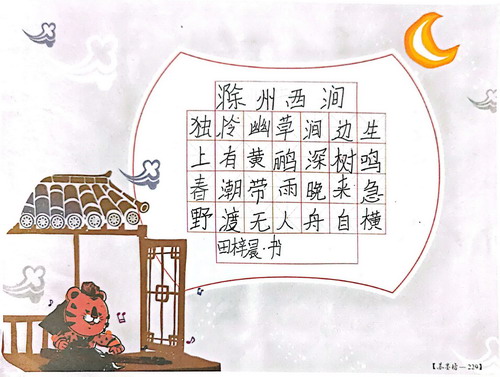 滁州西涧
独怜幽草涧边生
上有黄鹂深树鸣
春潮带雨晚来急
野渡无人舟自横
田梓晨·书